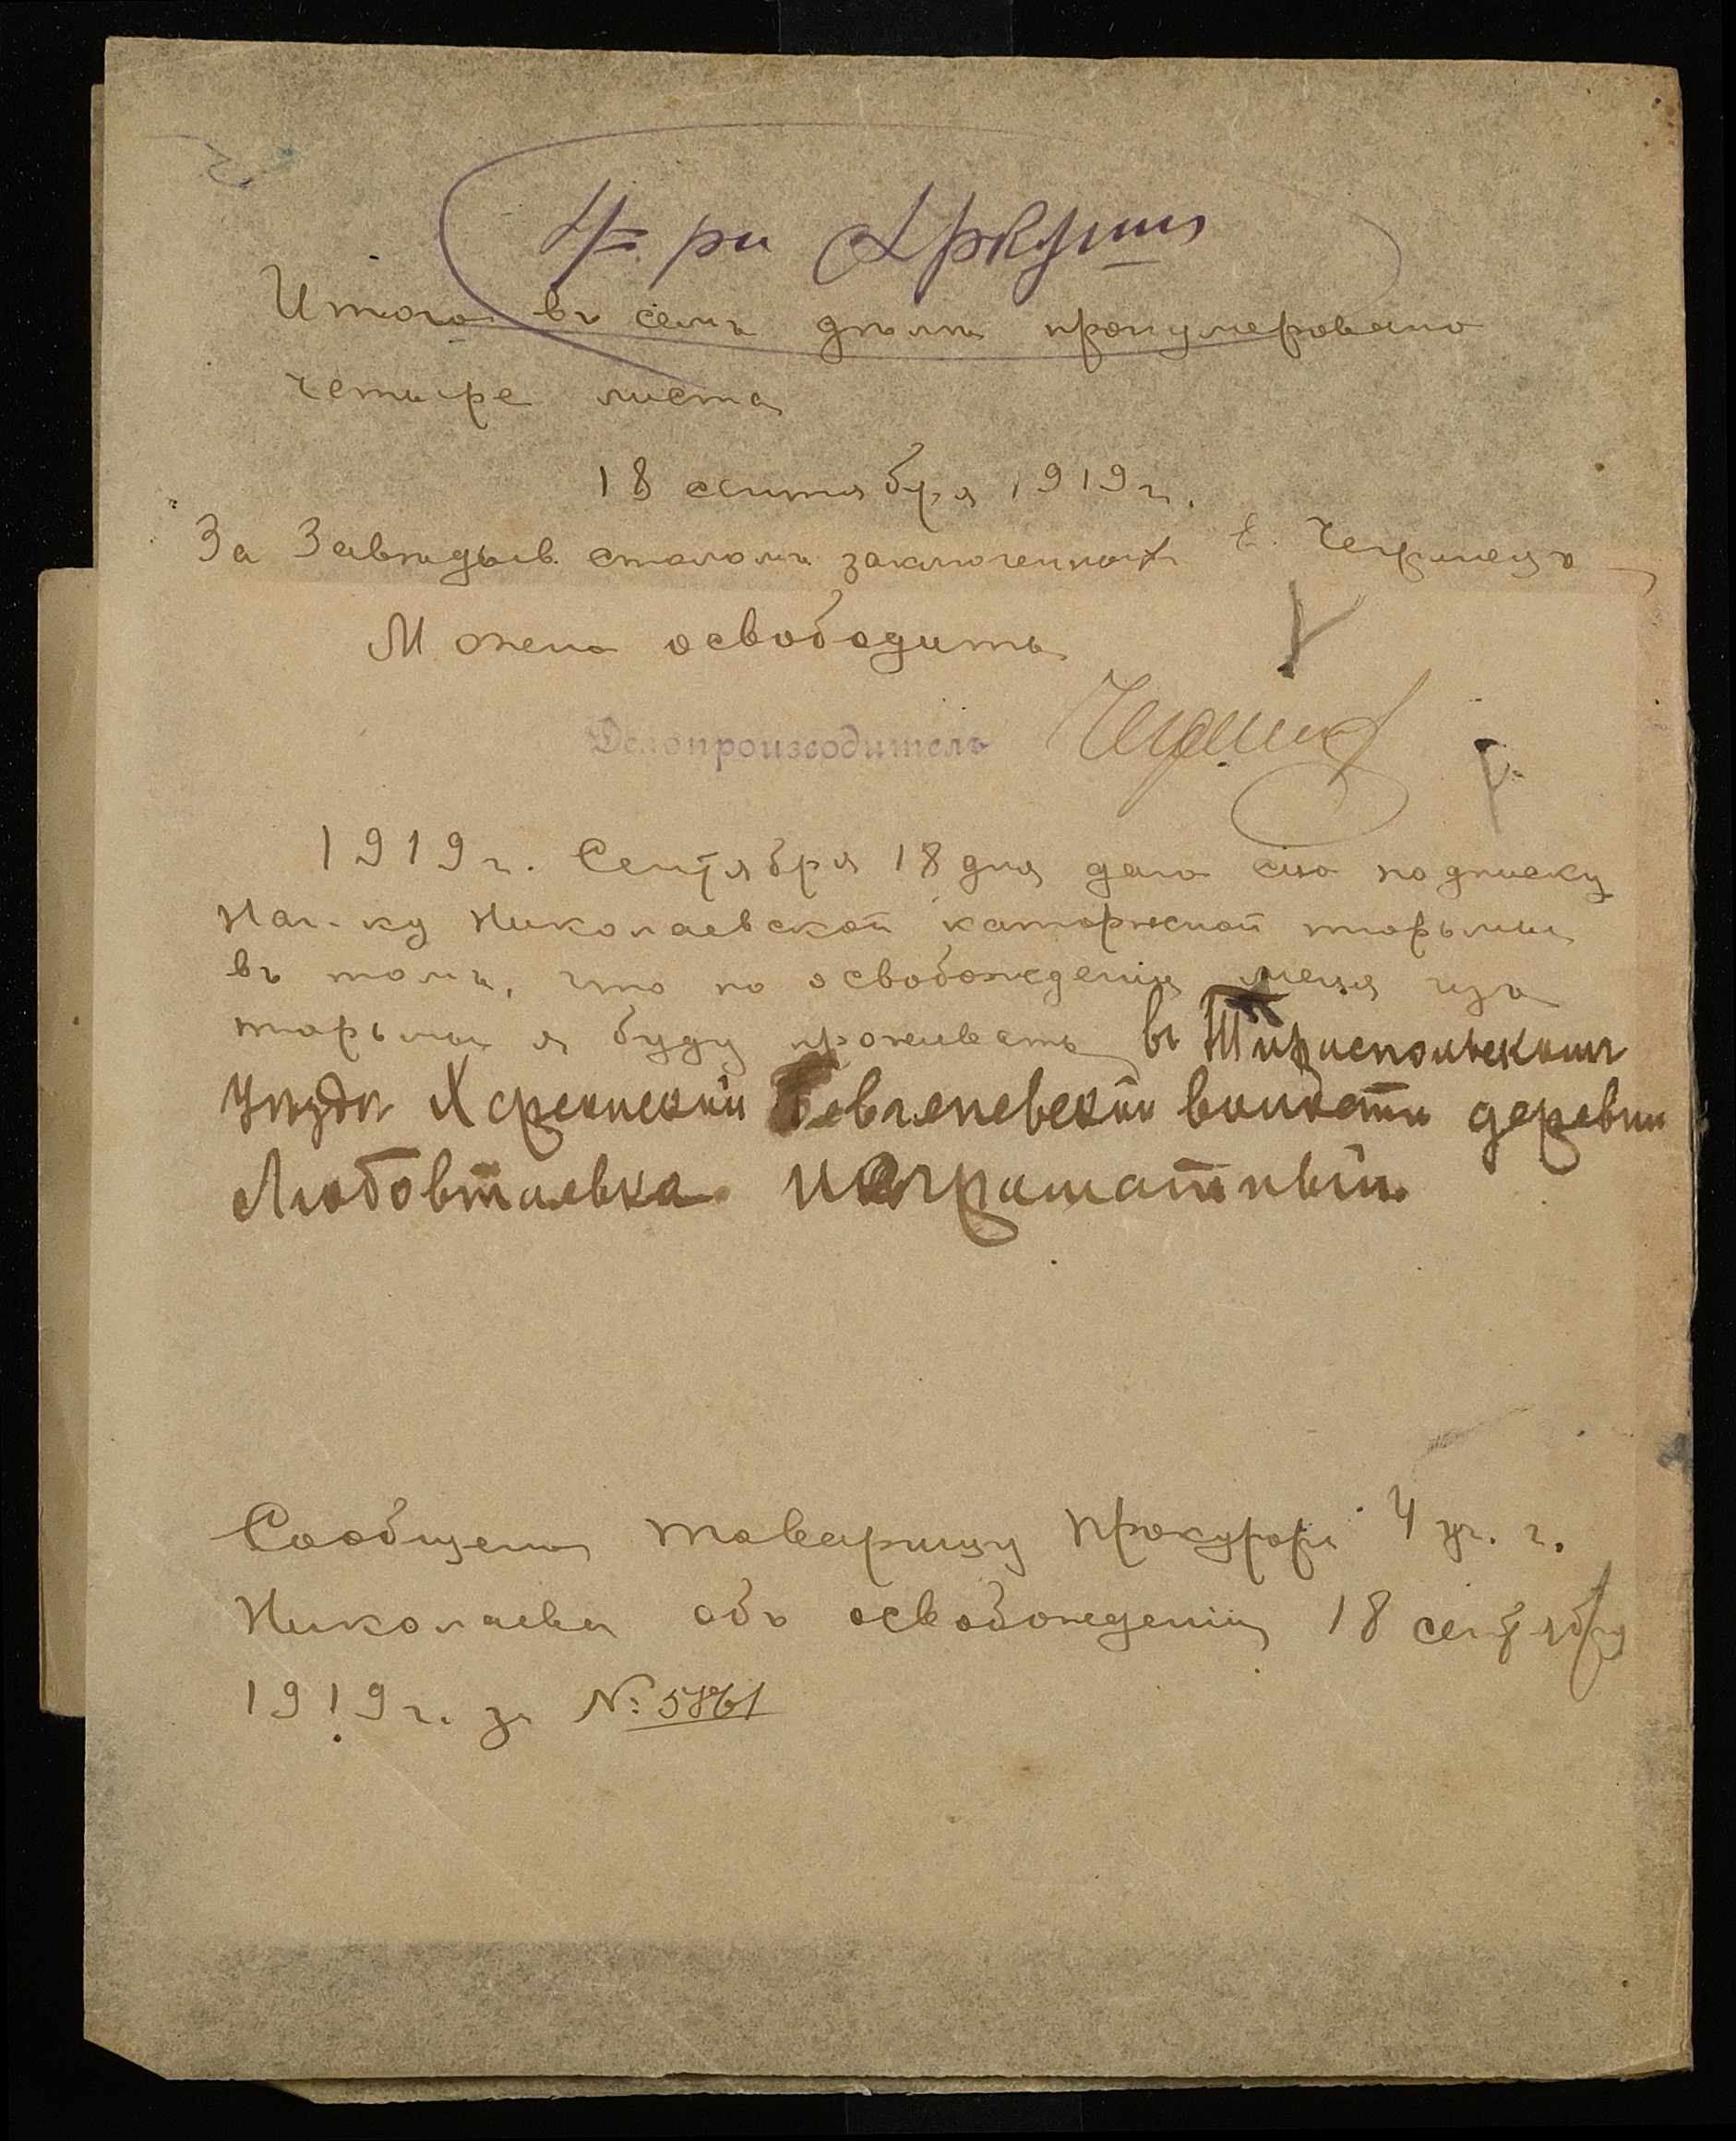 4-ри Аркуши
Итого въ семъ дѣлѣ пронумеровано
четыре листа
18 сентября 1919 г.
За Завѣдыв. столомъ заключенных Е.
Можно освободить
Делопроизводитель
1919 г. Сентября 18 дня даю сію подписку
Нач-ку Николаевской каторжной тюрьмы
въ томъ, что по освобожденіи меня изъ
тюрьмы я буду проживать в Тирисполскиш
уѣзди Херсиский волости деревни
Любовтиевка
Сообщено товарищу Прокурора 4 уч. г.
Николаева объ освобожденіи 18 сентября
1919 г. за № 5861